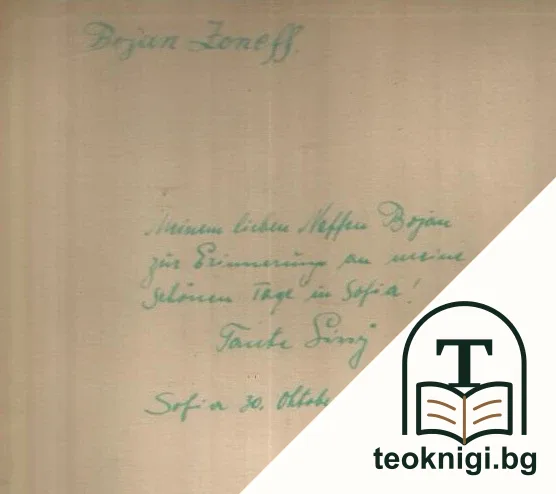 Bojan Zoneff.
Meinem lieben Neffen Bojan
zur Erinnerung an meine
schönen Tage in Sofia!
Tante
Sofia 30. Oktobe
T
teoknigi.bg